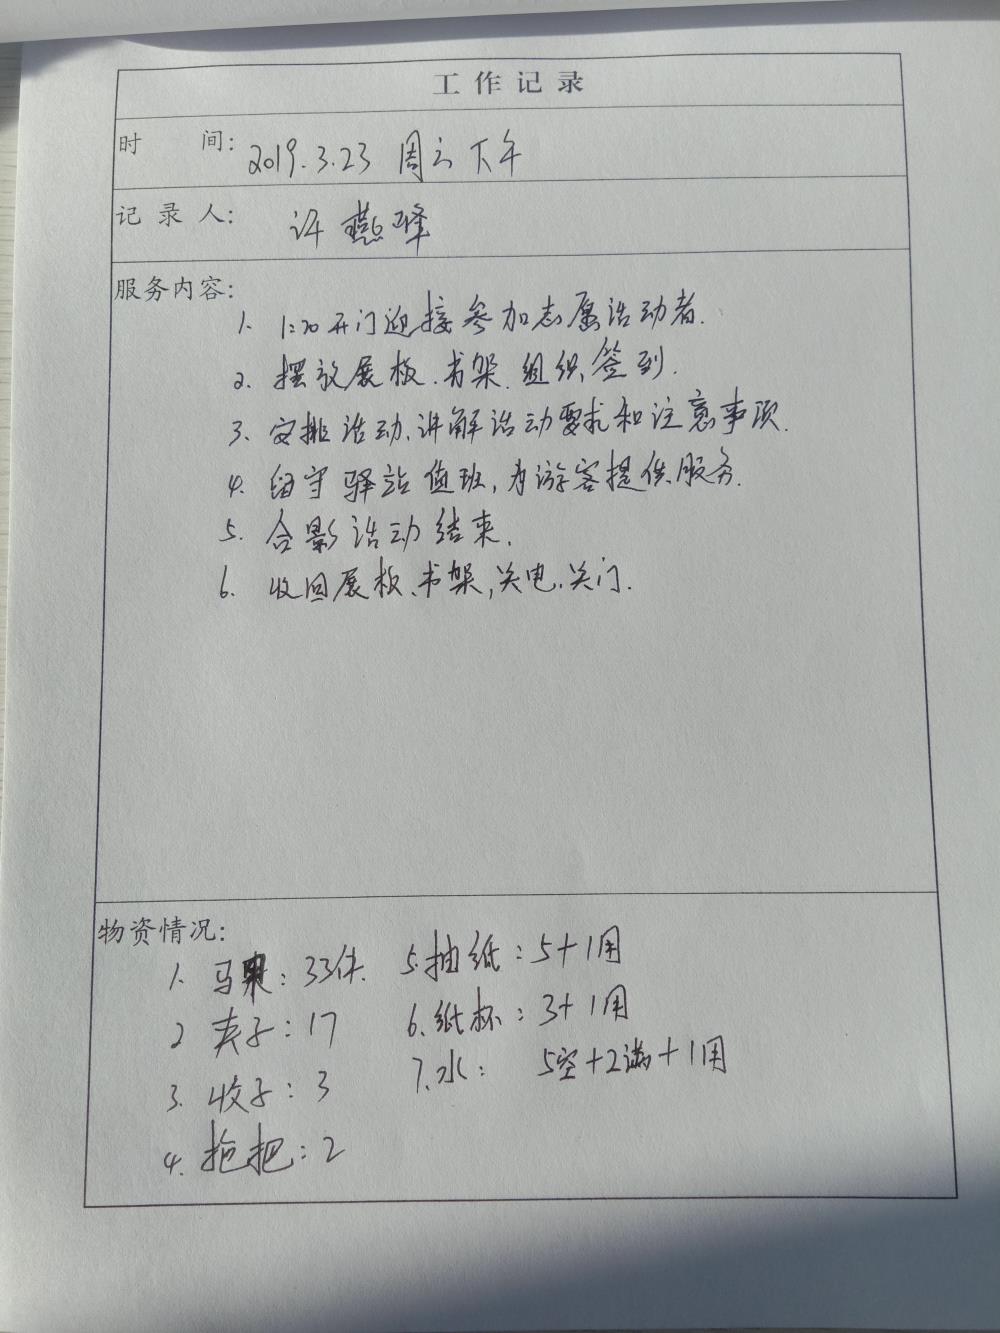 工作记录
时 间: 2019.3.23 周六下午
记录人: 许燕峰
服务内容:
1. 1:20开门迎接参加志愿活动者.
2. 摆放展板.书架.组织签到.
3. 安排活动、讲解活动要求和注意事项.
4. 留守驿站值班,为游客提供服务.
5. 合影活动结束.
6. 收回展板、书架,关电.关门.
物资情况:
1. 马甲:33件. 5.抽纸:5+1用
2 夹子:17 6.纸杯:3+1用
3. 子:3 7.水: 5空+2满+1用
4. 拖把:2